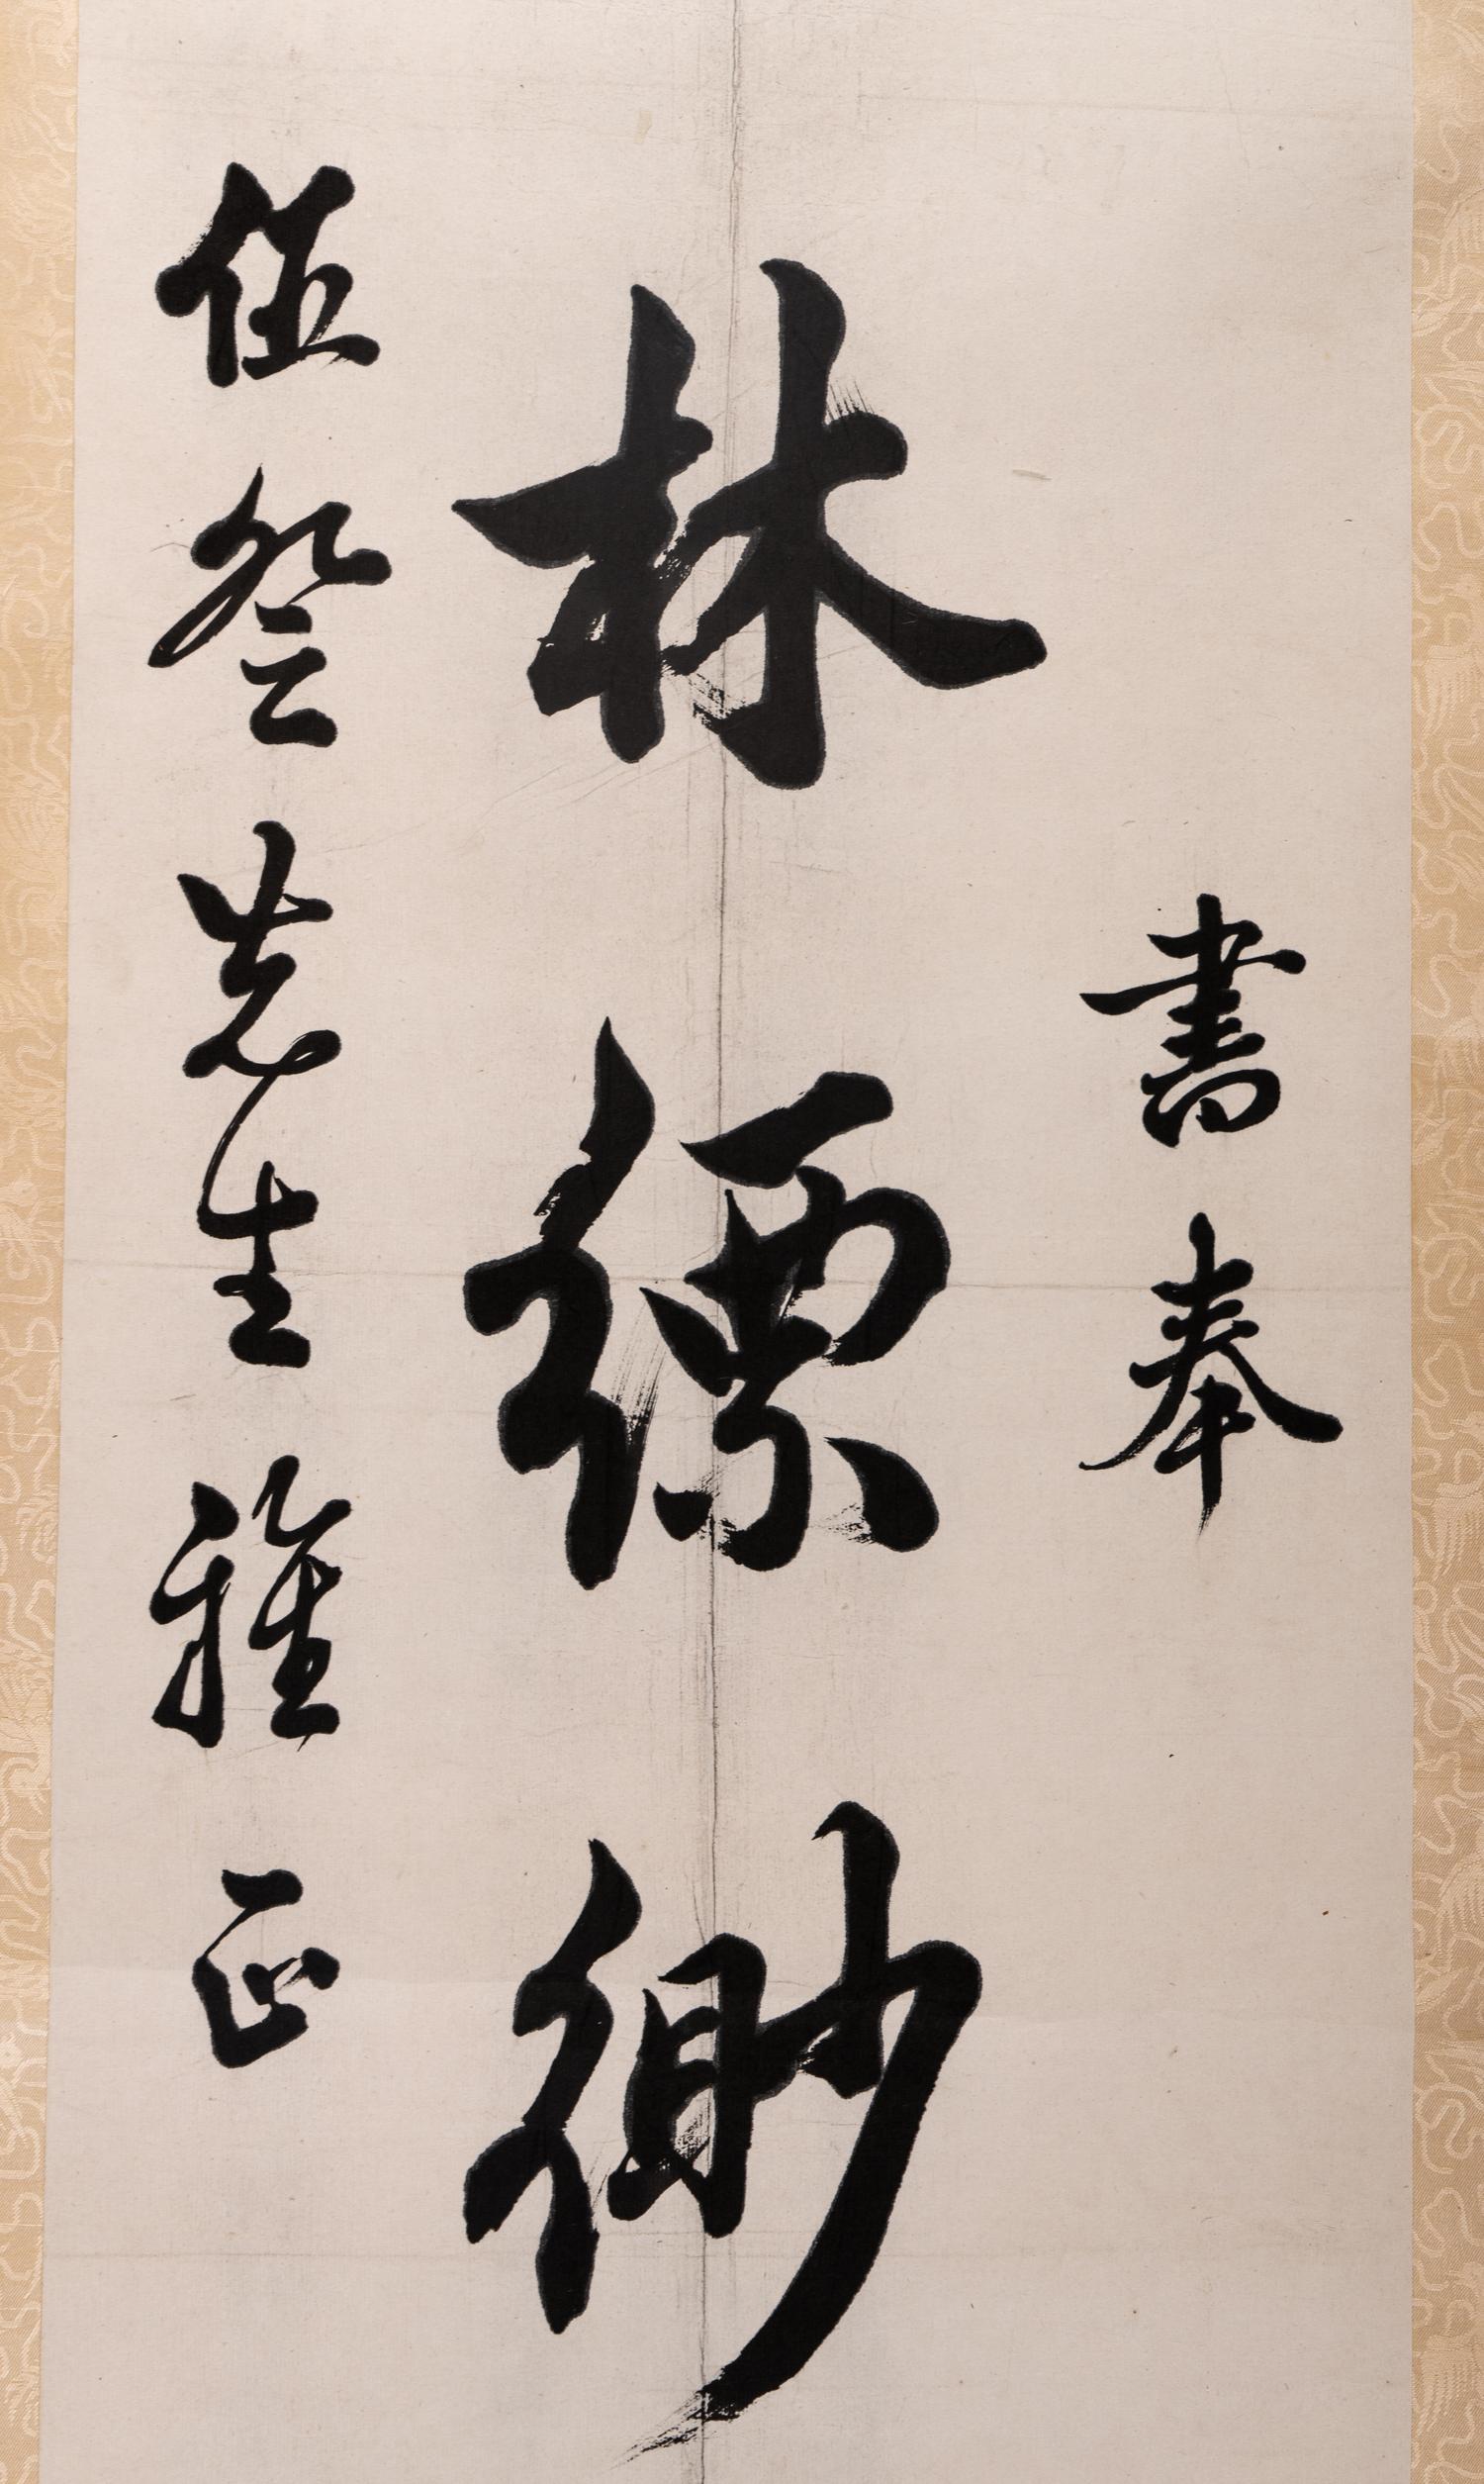 書奉
林縹緲
伍登先生雅正